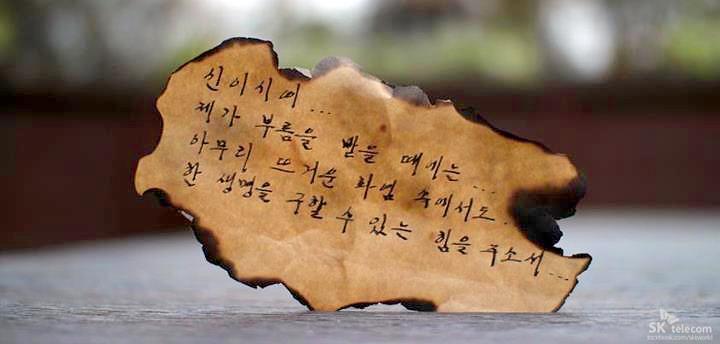 신이시여...
제가 부름을 받을 때에는...
아무리 뜨거운 화염 속에서도..
한 생명을 구할 수 있는 힘을 주소서...
SK telecom
facebook.com/sktworld